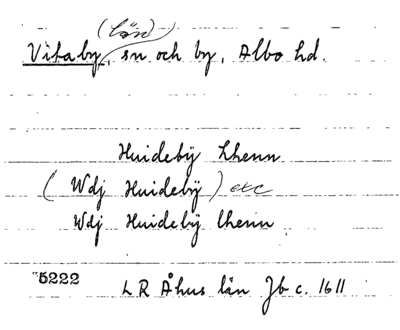 (län)
Vitaby, sn och by, Albo hd.
Huidebÿ Lhenn
(Wdj Huidebÿ) etc
Wdj Huidebÿ lhenn
5222 LR Åhus län Jb c. 1611